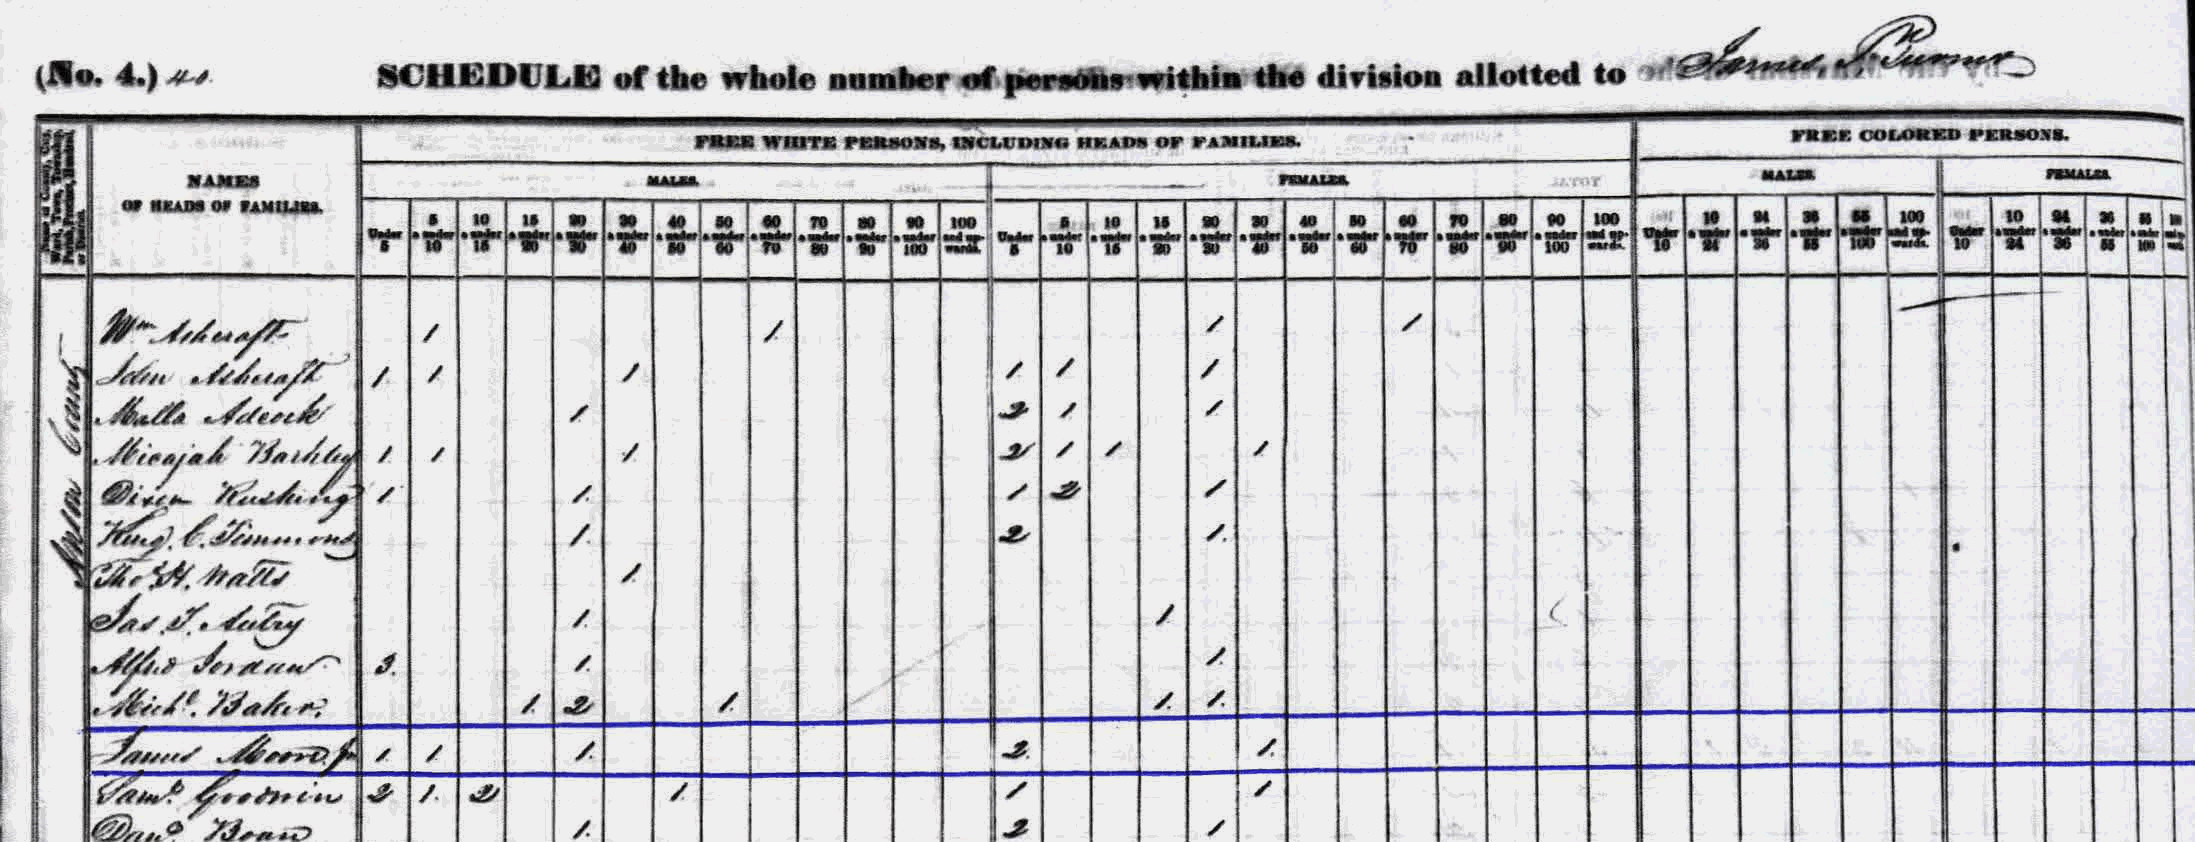 (No. 4.) 40. SCHEDULE of the whole number of persons within the division allotted to James
FREE WHITE PERSONS, INCLUDING HEADS OF FAMILIES. FREE COLORED PERSONS.
NAMES OF HEADS OF FAMILIES.
MALES. FEMALES. MALES. FEMALES.
Under 5 5 a under 10 10 a under 15 15 a under 20 20 a under 30 30 a under 40 40 a under 50 50 a under 60 60 a under 70 70 a under 80 80 a under 90 90 a under 100 100 and upwards. Under 5 5 a under 10 10 a under 15 15 a under 20 20 a under 30 30 a under 40 40 a under 50 50 a under 60 60 a under 70 70 a under 80 80 a under 90 90 a under 100 100 and upwards. Under 10 10 a under 24 24 a under 36 36 a under 55 55 a under 100 100 and upwards. Under 10 10 a under 24 24 a under 36 36 a under 55 55 a under 100
Anson County
Wm Ashcraft 1 1. 1 1
John Ashcraft 1. 1. 1 1. 1 1
Adcock 1. 2 1 1
Micajah 1. 1 1. 2 1 1 1
Dixon Rushing 1. 1. 1 2 1
King. C. Timmons 1. 2 1.
Thos. H. Watts 1.
Jas. T. Autry 1. 1
Alfred Jordan 3. 1. 1.
Michl. Baker. 1. 2 1. 1. 1.
James Moore Jr 1. 1. 1. 2. 1.
Saml. Goodwin 2 1. 2 1. 1 1
Danl. Boan 1. 2 1